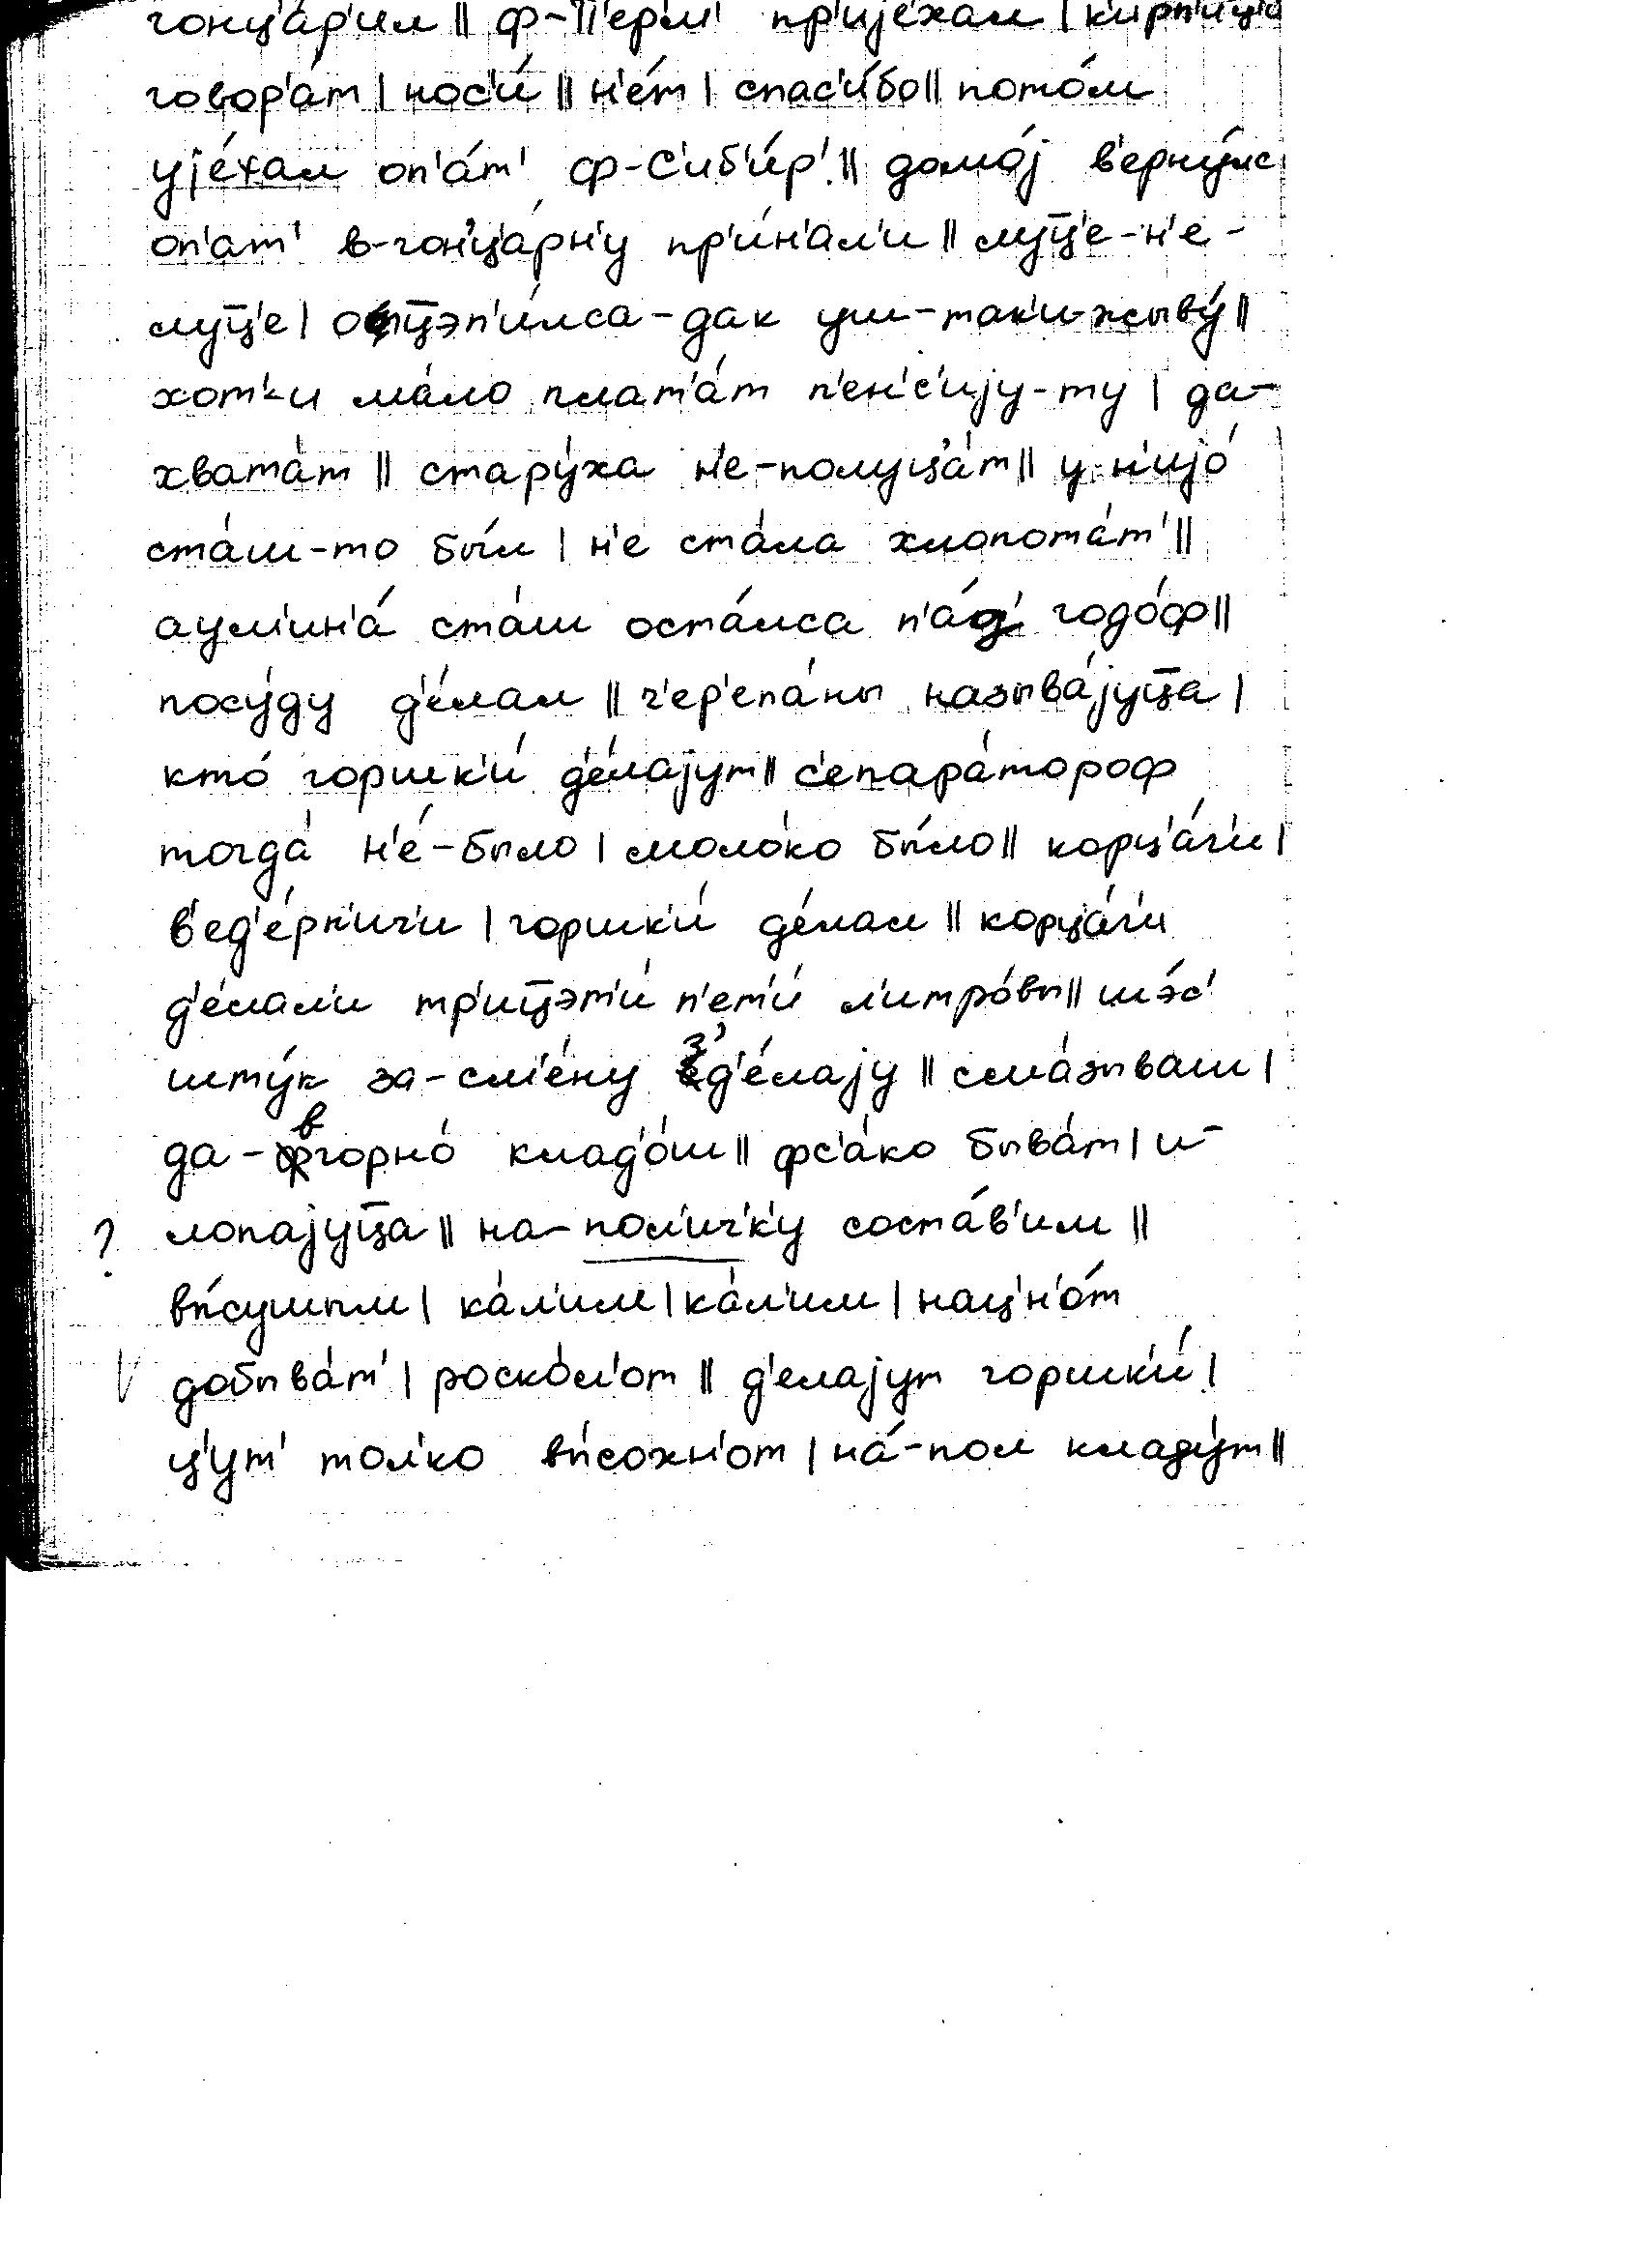 гонц'а́р'ил || ф-П'ерм' пр'ије́хал | к'ирп'иц'а
говор'а́т | нос'и́ || н'е́т | спас'и́бо || пото́м
ује́хал оп'а́т' ф-С'иб'и́р' || домо́ј в'ерну́лс
оп'ат' в-гон'ц'а́рн'у пр'и́н'ал'и || луц̄'е-н'е-
луц̄'е | оц̄эп'и́лса-дак уш-так'и-жыву́ ||
хот'-и ма́ло плат'а́т п'ен'с'ију-ту | да-
хвата́т || стару́ха н'е-полуц'а́т || у-н'ијо́
ста́ш-то бы́л | н'е ста́ла хлопота́т' ||
а ум'ин'а́ ста́ш оста́лса п'а́д' годо́ф ||
посу́ду д'е́лал || ч'ер'епа́ны называ́јуц̄а |
кто́ горшк'и́ д'е́лајут || с'епара́тороф
тогда́ н'е́-было | молоко́ бы́ло || корц'а́г'и |
в'ед'е́рн'ич'и | горшк'и́ де́лал || корц'а́г'и
д'е́лал'и тр'иц̄эт'и́ п'ет'и́ л'итро́вы || шэ́с'
шту́к за-см'е́ну з'д'е́лају || сма́зываш |
да-вгорно́ клад'о́ш || фс'а́ко быва́т | и-
? лопајуц̄а || на-пол'ич'к'у соста́в'им ||
вы́сушым | ка́л'им | ка́л'им | нац'н'о́т
V добыва́т' | роско́л'от || д'елајут горшк'и́ |
ц'ут' тол'ко вы́сохн'от | на́-пол кладу́т ||